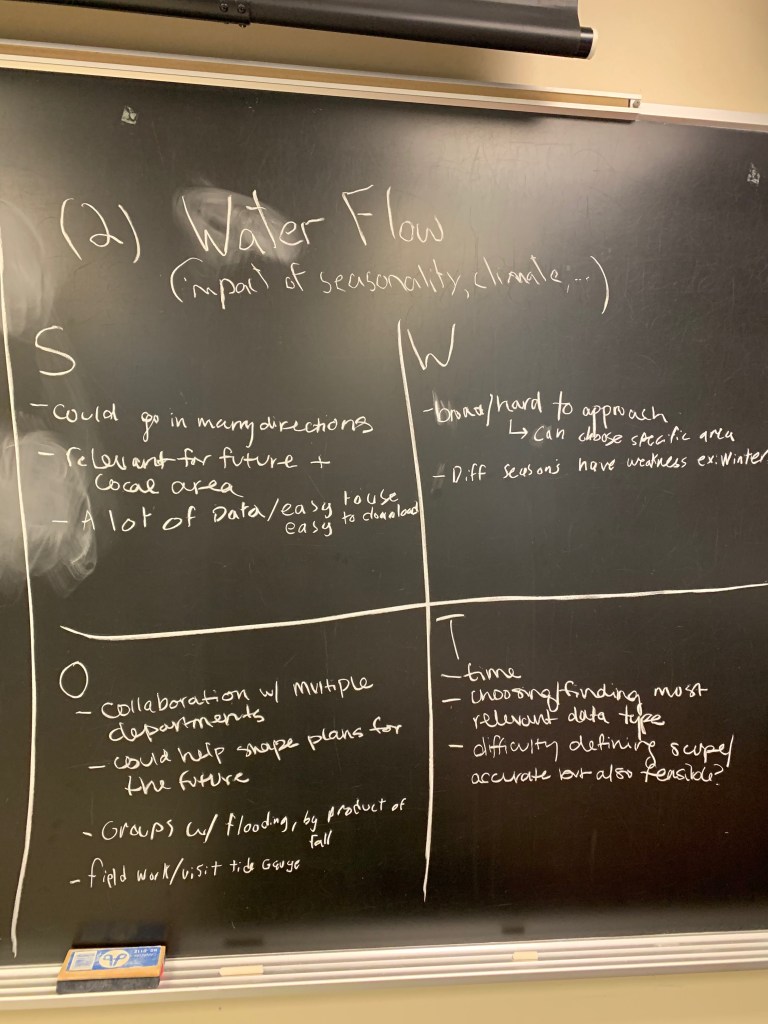 (2) Water Flow
(impact of seasonality, climate,...)
S
- Could go in many directions
- relevant for future +
local area
- A lot of Data/easy to use
easy to download
W
- broad/hard to approach
↳ can choose specific area
- Diff seasons have weakness ex: Winter
O
- collaboration w/ multiple
departments
- could help shape plans for
the future
- Groups w/ flooding, by product of
fall
- field work/visit tide Gauge
T
- time
- choosing/finding most
relevant data type
- difficulty defining scope/
accurate but also feasible?